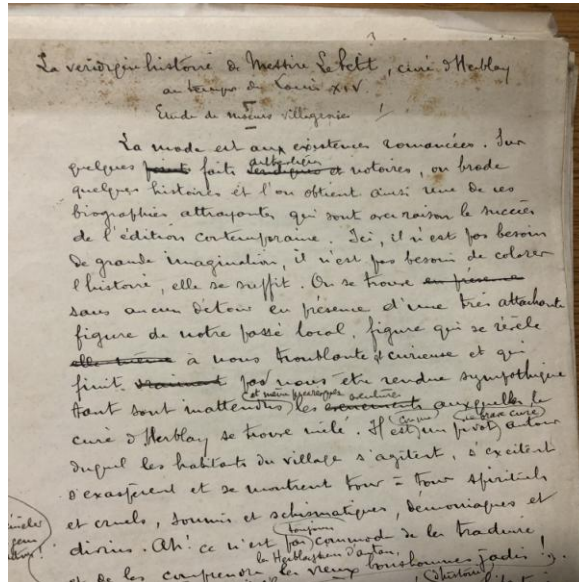 La veridique histoire de Messire Le Petit, curé d'Herblay
au temps de Louis XIV
Etude de mœurs villageoises
I
La mode est aux existences romancées. Sur
quelques faits authentiques et notoires, on brode
quelques histoires et l'on obtient ainsi une de ces
biographies attrayantes qui sont avec raison le succès
de l'édition contemporaine. Ici, il n'est pas besoin
de grande imagination, il n'est pas besoin de colorer
l'histoire, elle se suffit. On se trouve en présence
sans aucun détour en présence d'une très attachante
figure de notre passé local, figure qui se révèle
elle même à nous troublante et curieuse et qui
finit vraiment par nous être rendue sympathique
et même pittoresques aventures
tant sont inattendus les événements auxquelles le
curé d'Herblay se trouve mêlé. Il est un pivot autour
le brave curé
duquel les habitants du village s'agitent, s'excitent
s'exaspèrent et se montrent tour à tour spirituels
et cruels, soumis et schismatiques, démoniaques et
toujours
divins. Ah! ce n'est pas commode de les traduire
les Herblaysiens d'antan,
et de les comprendre les vieux bonshommes jadis!